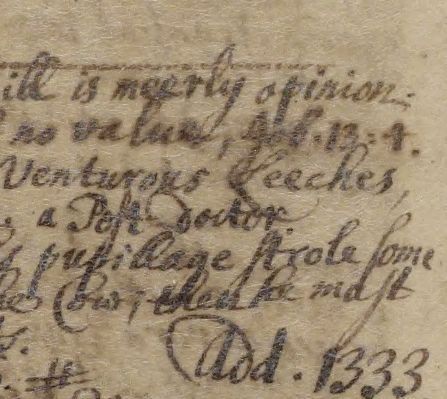 ill is meerly opinion.
no value, Job. 13. 4.
Venturous Leeches,
a Post doctor
pupillage strole some
Cow; then he must
Add. 1333